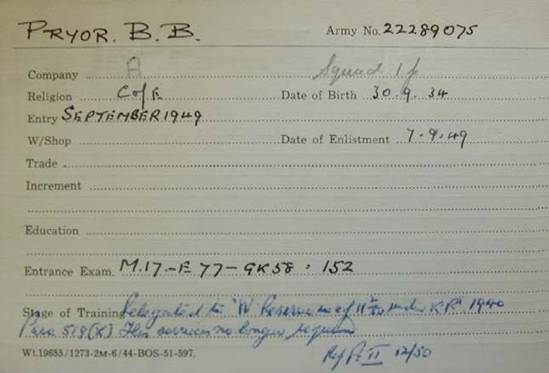 PRYOR. B. B. Army No. 22289075
Company A Squad 1
Religion C of E Date of Birth 30.9.34
Entry SEPTEMBER 1949
W/Shop Date of Enlistment 7-9-49
Trade
Increment
Education
Entrance Exam. M.17.-E 77-GK58 = 152
Stage of Training Relegated to "W Reserve under K.R" 1940
Para 519(X) His services no longer
Wt.19655/1273-2M-6/44-BOS-51-597. Pt II 12/50